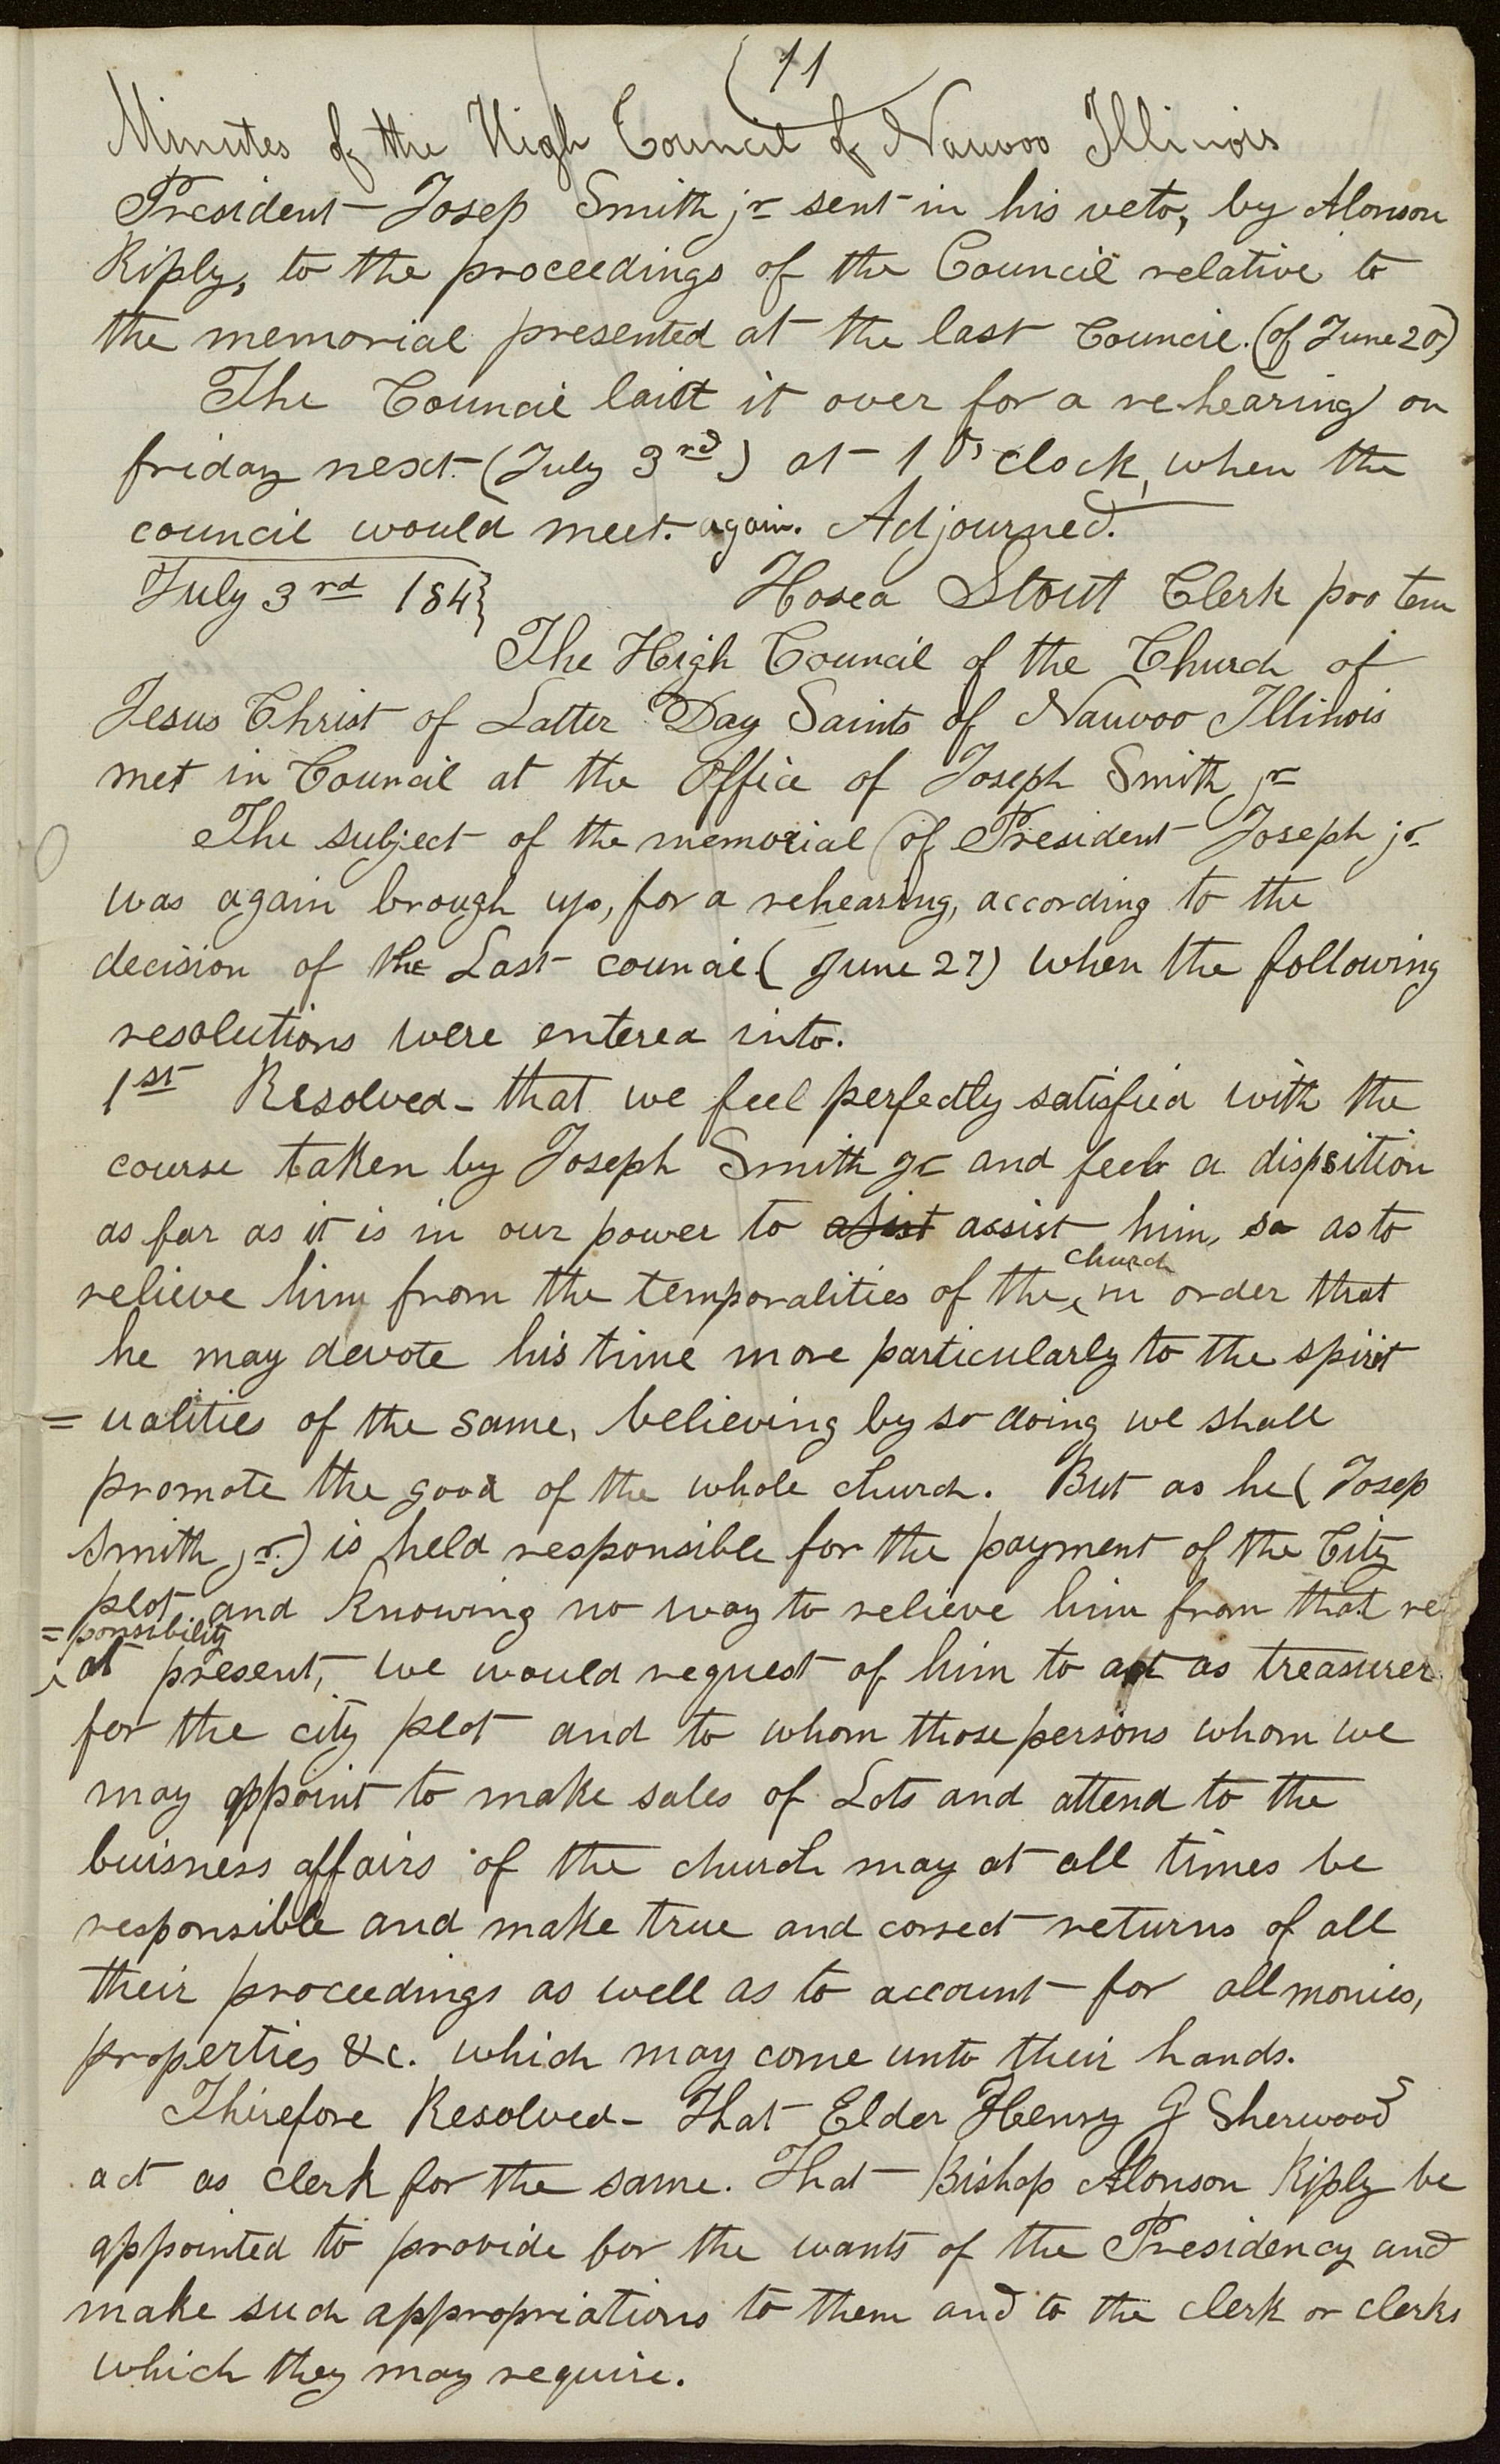 11
Minutes of the High Council of Nauvoo Illinois
President Josep Smith jr sent in his veto, by Alonson
Riply, to the proceedings of the Council relative to
the memorial presented at the last Council. (of June 20)
The Council laid it over for a re-hearing on
friday next (July 3rd) at 1 O'clock, when the
council would meet again. Adjourned.
July 3rd 184} Hosea Stout Clerk pro tem
The High Council of the Church of
Jesus Christ of Latter Day Saints of Nauvoo Illinois
met in Council at the Office of Joseph Smith jr
The subject of the memorial (of President Joseph jr
was again brough up, for a rehearing, according to the
decision of the Last council (June 27) when the following
resolutions were entered into.
1st Resolved- that we feel perfectly satisfied with the
course taken by Joseph Smith jr and feel a dispsition
as far as it is in our power to asist assist him, so as to
relieve him from the temporalities of the church in order that
he may devote his time more particularly to the spirit
= ualities of the same, believing by so doing we shall
promote the good of the whole church. But as he (Josep
Smith jr.) is held responsible for the payment of the City
plot and knowing no way to relieve him from that res
=ponsibility
at present, we would request of him to act as treasurer
for the city plot and to whom those persons whom we
may appoint to make sales of Lots and attend to the
buisness affairs of the church may at all times be
responsible and make true and correct returns of all
their proceedings as well as to account for all monies,
properties &c. which may come unto their hands.
Therefore Resolved- That Elder Henry G Sherwood
act as clerk for the same. That Bishop Alonson Riply be
appointed to provide for the wants of the Presidency and
make such appropriations to them and to the clerk or clerks
which they may require.